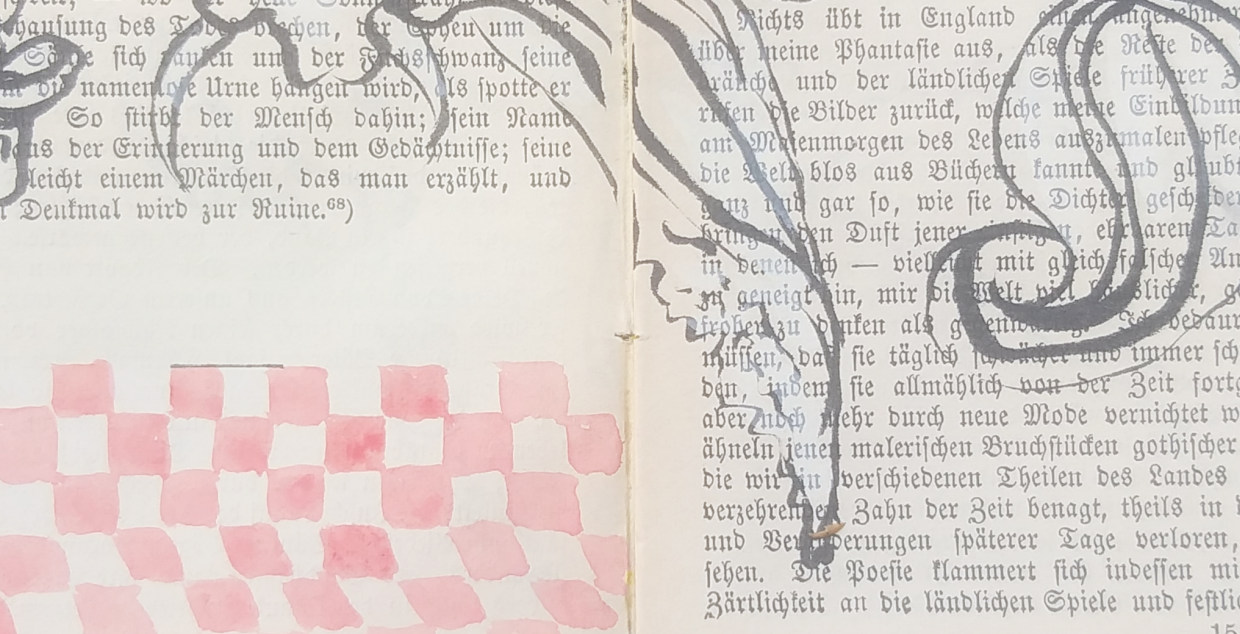 hausung des brechen, der Epheu um die
Särge sich ranken und der Fuchsschwanz seine
um die namenlose Urne hangen wird, als spotte er
So stirbt der Mensch dahin; sein Name
aus der Erinnerung und dem Gedächtnisse; seine
leicht einem Märchen, das man erzählt, und
Denkmal wird zur Ruine.⁶⁸)
Nichts übt in England einen angenehmer
über meine Phantasie aus, als die Reste de
und der ländlichen Spiele früherer
rufen die Bilder zurück, welche meine Einbildun
am Maienmorgen des Lebens auszumalen pfleg
die Welt blos aus Büchern kannte und glaubt
ganz und gar so, wie sie die Dichter geschilder
bringen den Duft jener, ehrbaren Ta
in denen ich — vielleicht mit gleich falscher An
zu geneigt bin, mir die Welt viel, g
froher zu denken als gegenwärtig. Ich bedaur
müssen, daß sie täglich schwächer und immer sch
den, indem sie allmählich von der Zeit fortg
aber noch mehr durch neue Mode vernichtet w
ähneln jenen malerischen Bruchstücken gothischer
die wir in verschiedenen Theilen des Landes
verzehrenden Zahn der Zeit benagt, theils in
und Veränderungen späterer Tage verloren,
sehen. Die Poesie klammert sich indessen mi
Zärtlichkeit an die ländlichen Spiele und festli
15